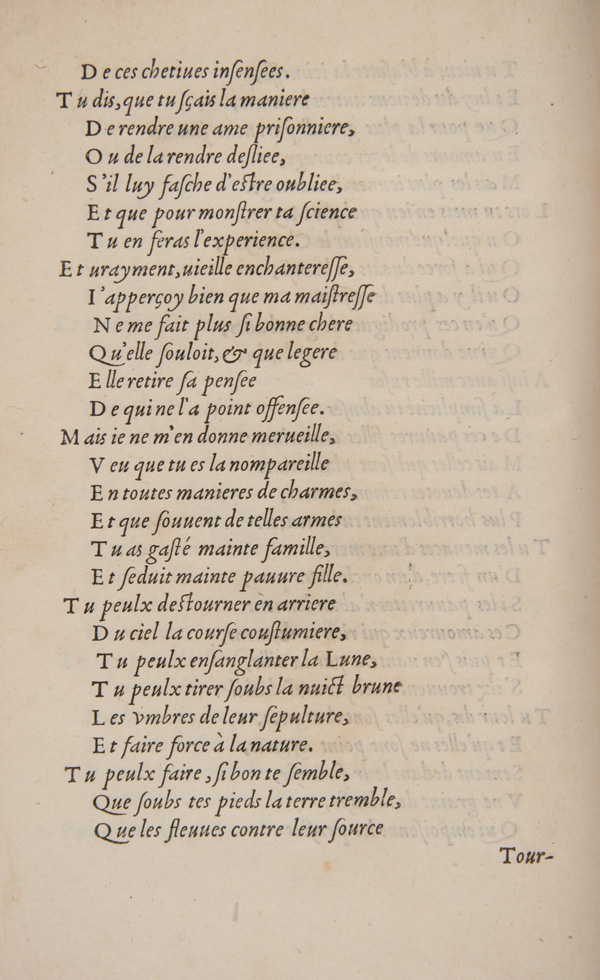 De ces chetiues inſenſees.
Tu dis, que tu ſçais la maniere
De rendre une ame priſonniere,
Ou de la rendre deſliee,
S'il luy faſche d'eſtre oubliee,
Et que pour monſtrer ta ſcience
Tu en feras l'experience.
Et urayment, uieille enchantereſſe,
I'apperçoy bien que ma maiſtreſſe
Ne me fait plus ſi bonne chere
Qu'elle ſouloit, & que legere
Elle retire ſa penſee
De qui ne l'a point offenſee.
Mais ie ne m'en donne merueille,
Veu que tu es la nompareille
En toutes manieres de charmes,
Et que ſouuent de telles armes
Tu as gaſté mainte famille,
Et ſeduit mainte pauure fille.
Tu peulx deſtourner en arriere
Du ciel la courſe couſtumiere,
Tu peulx enſanglanter la Lune,
Tu peulx tirer ſoubs la nuict brune
Les vmbres de leur ſepulture,
Et faire force à la nature.
Tu peulx faire, ſi bon te ſemble,
Que ſoubs tes pieds la terre tremble,
Que les fleuues contre leur ſource
Tour-